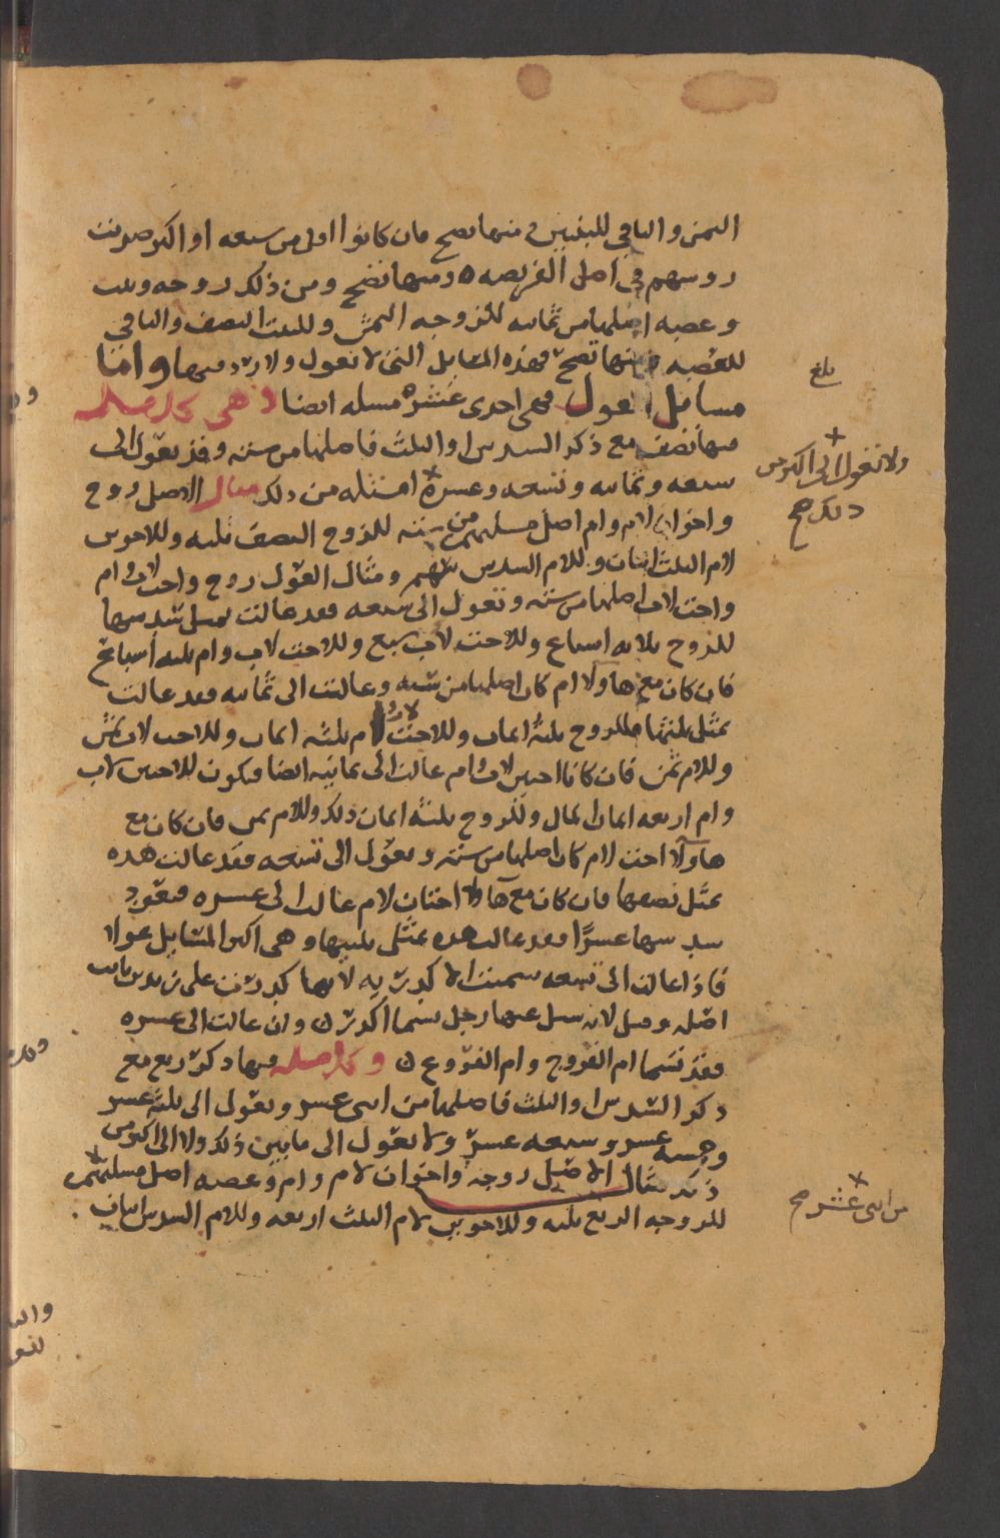 الثمن والباقي للبنين ومنها تصح فان كانوا اقل من سبعه او اكثر ضربت
روسهم في اصل الفريضه ومنها تصح ومن ذلك زوجه وبنت
وعصبه اصلها من ثمانيه للزوجه الثمن وللبنت النصف والباقي
للعصبه ومنها تصح فهذه المسايل التي لا تعول ولا رد فيها واما
مسايل العول فهي احدى عشره مسله ايضا وهي كل مسله
فيها نصف مع ذكر السدس او الثلث فاصلها من سته وقد تعول الى
سبعه وثمانيه وتسعه وعشره امثله من ذلك مثال الاصل زوج
واخوان لام وام اصل مسلتهم من سته للزوج النصف ثلثه وللاخوين
لام الثلث اثنان وللام السدس سهم ومثال العول زوج واخت لاب وام
واخت لاب اصلها من سته وتعول الى سبعه فقد عالت بمثل سدسها
للزوج ثلاثه اسباع وللاخت لاب سبع وللاخت لاب وام ثلثه اسباع
فان كان مع هاولا ام كان اصلها من سته وعالت الى ثمانيه فقد عالت
بمثل ثلثها فللزوج ثلثة اثمان وللاخت لاب وام ثلثه اثمان وللاخت لاب ثمن
وللام ثمن فان كانا اختين لاب وام عالت الى ثمانيه ايضا فيكون للاختين لاب
وام اربعه اثمان المال وللزوج ثلثة اثمان ذلك وللام ثمن فان كان مع
هاولا اخت لام كان اصلها من سته وتعول الى تسعه فقد عالت هذه
بمثل نصفها فان كان مع هاولا اختان لام عالت الى عشره فيعود
سدسها عشرا فقد عالت هذه بمثل ثلثيها وهي اكثر المسايل عولا
فاذا عالت الى تسعه سميت الاكدريه لانها كدرت على زيد بن ثابت
اصله وقيل لانه سيل عنها رجل يسما اكدر وان عالت الى عشره
فقد تسما ام الفروج وام الفروع وكل مسله فيها ذكر ربع مع
ذكر السدس او الثلث فاصلها من اثنى عشر وتعول الى ثلثة عشر
وخمسه عشر وسبعه عشر ولا تعول الى ما بين ذلك ولا الى اكثر من
ذلك مثال الاصل زوجه واخوان لام وام وعصبه اصل مسلتهم
للزوجه الربع ثلثه وللاخوين لام الثلث اربعه وللام السدس اثنان
بلغ
ولا تعول الى اكثر من
ذلك صح
من اثنى عشر صح